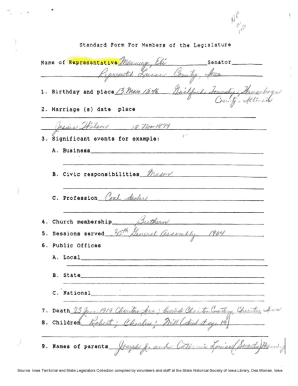 Standard Form For Members of the Legislature
Name of Representative Manning, Eli Senator
Represented Lucas County, Iowa
1. Birthday and place 13 Mar 1846 Guilford Township, Winnebago
County, Illinois
2. Marriage (s) date place
Jessie Wilson 18 Nov 1879
3. Significant events for example:
A. Business
B. Civic responsibilities Mason
C. Profession Coal dealer
4. Church membership
5. Sessions served 30th General Assembly 1904
6. Public Offices
A. Local
B. State
C. National
7. Death 23 Chariton, Iowa; buried Chariton Cemetery Chariton Iowa
8. Children Robert; Charles; Will (died at age 19)
9. Names of parents Joseph J. and Louisa Manning
Source: Iowa Territorial and State Legislators Collection compiled by volunteers and staff at the State Historical Society of Iowa Library, Des Moines, Iowa.